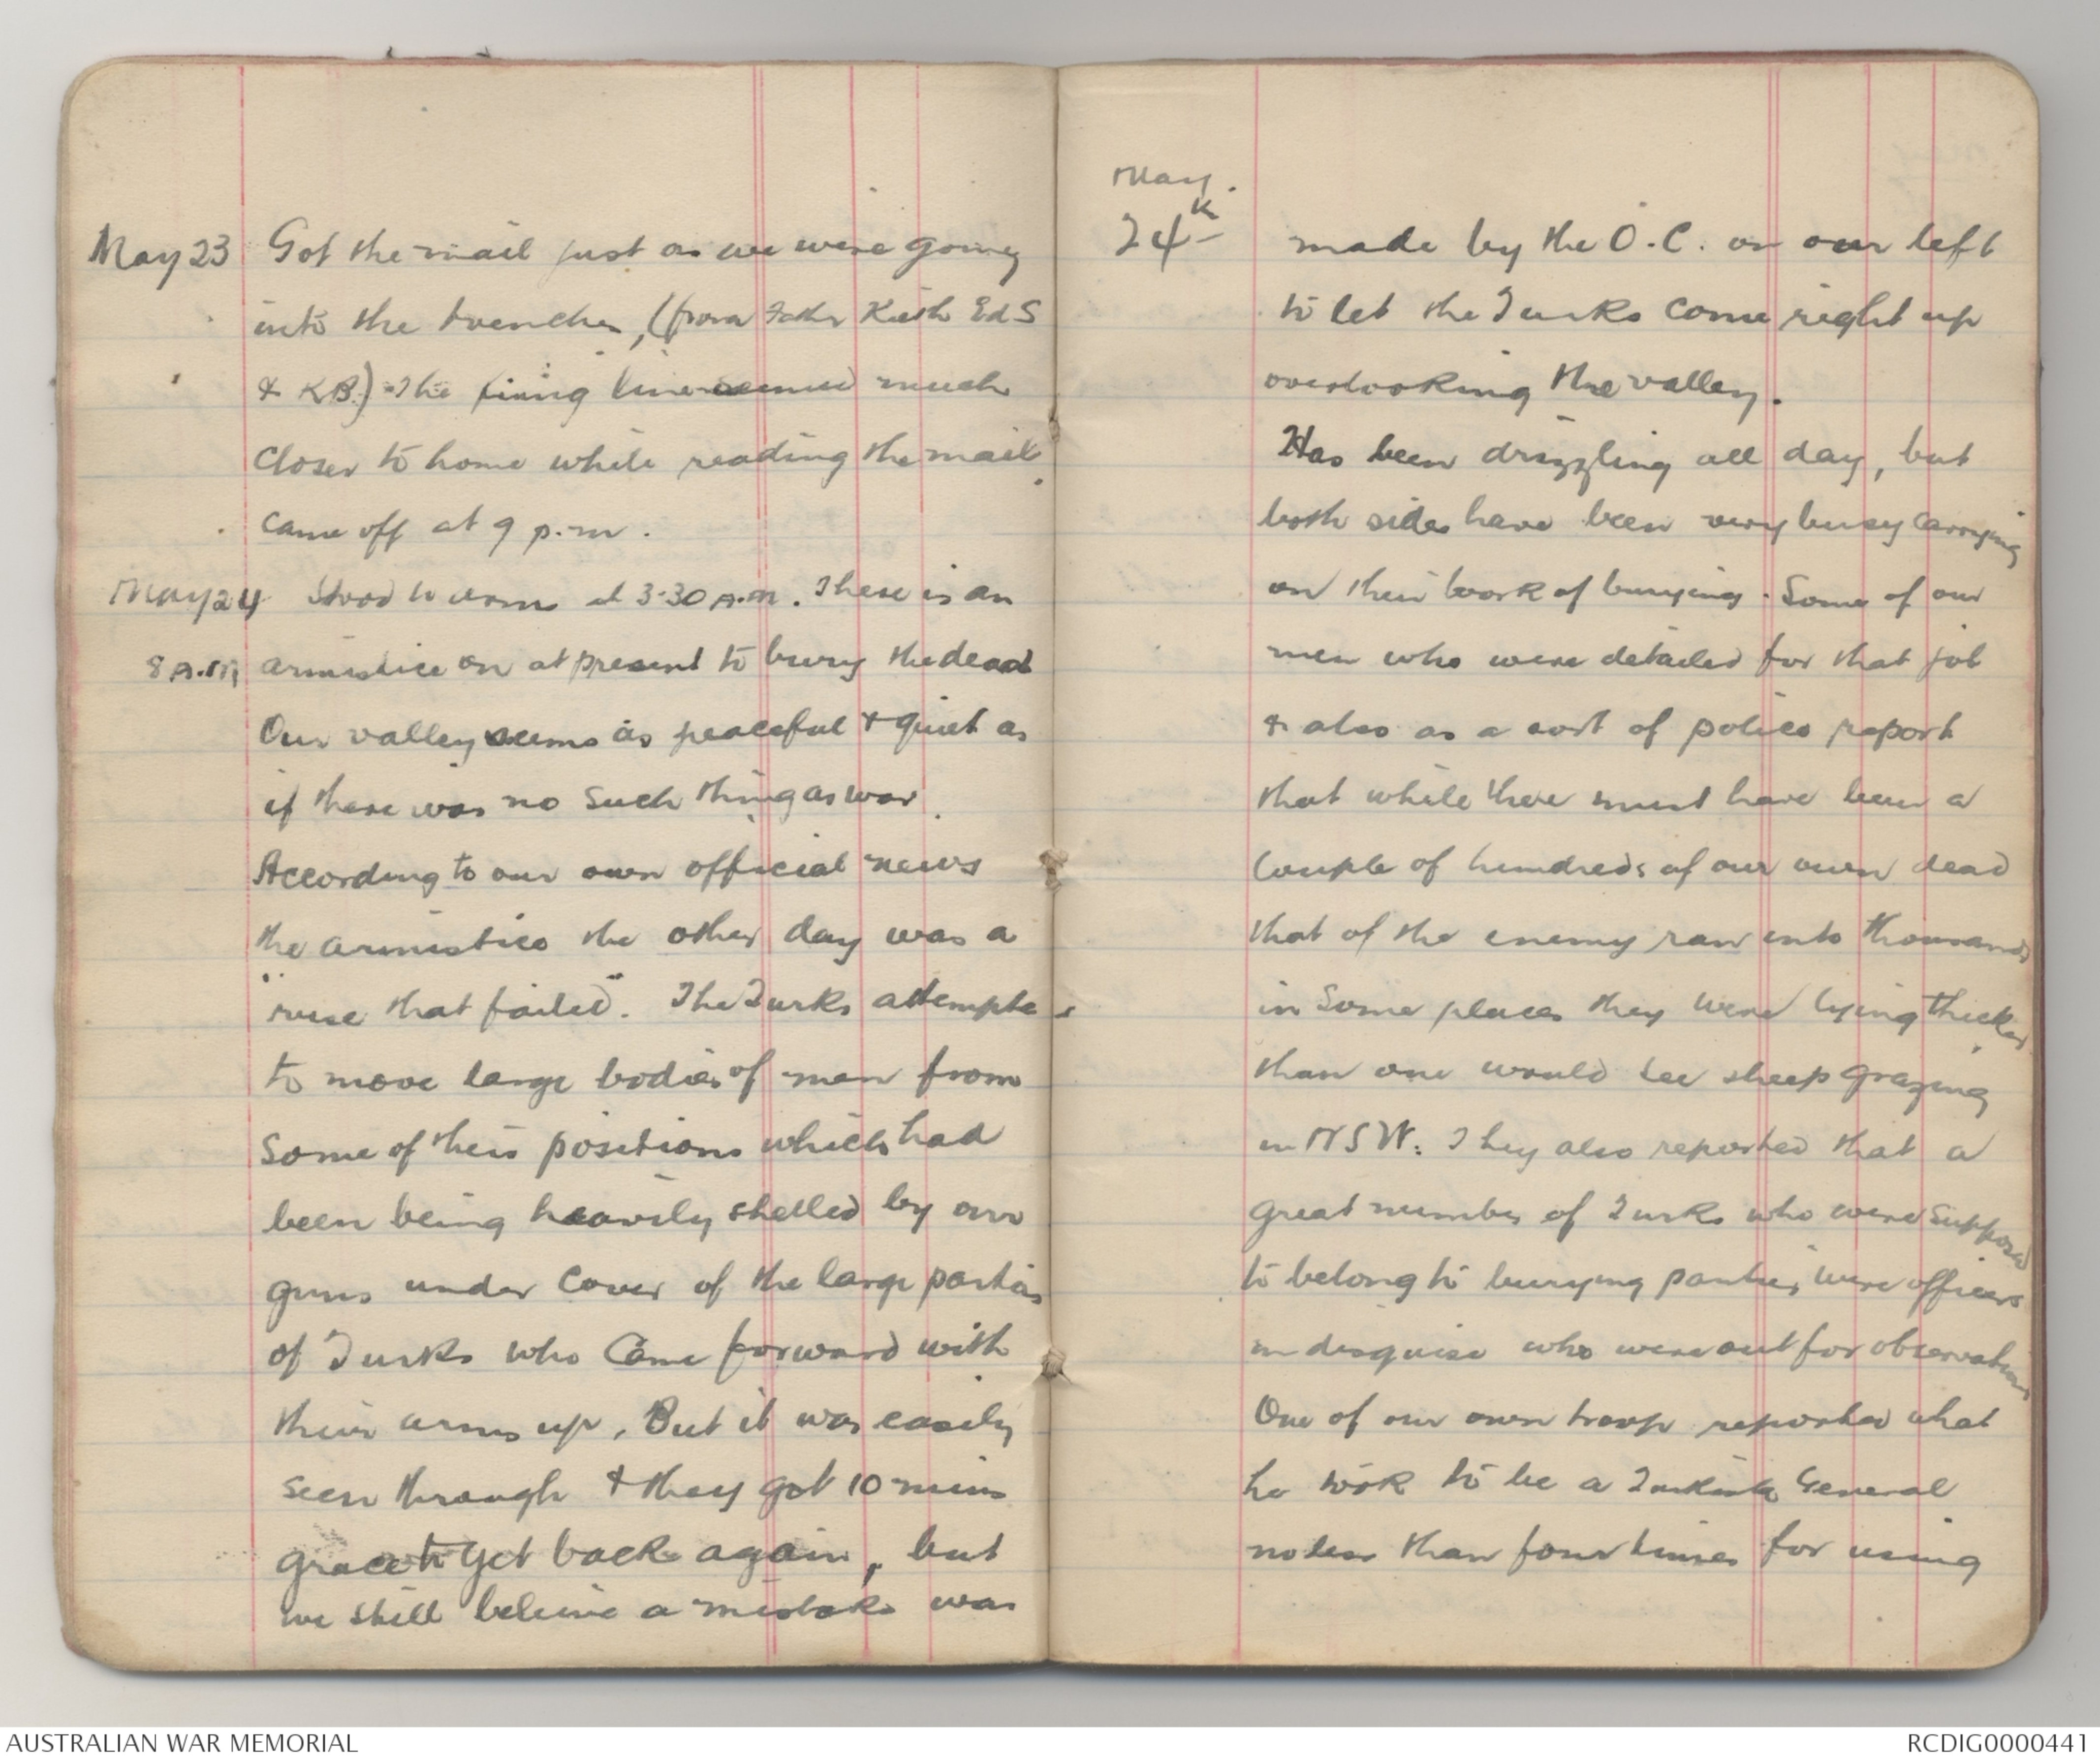 May 23 Got the mail just as we were going
into the trenches, (from Father Keith Ed S
& KB.) The firing line seemed much
closer to home while reading the mail.
Came off at 9 p.m.
May 24 Stood to arms at 3-30 A.M. There is an
8 A.M armistice on at present to bury the dead
Our valley seems as peaceful & quiet as
if there was no such thing as war.
According to our own official news
the armistice the other day was a
"ruse that failed". The Turks attempts
to move large bodies of men from
some of their positions which had
been being heavily shelled by our
guns under cover of the large parties
of Turks who came forward with
their arms up, But it was easily
seen through & they got 10 mins
grace to get back again, but
we still believe a mistake was
May.
24th made by the O.C. on our left
to let the Turks come right up
overlooking the valley.
Has been drizzling all day, but
both sides have been very busy carrying
on their work of burying. Some of our
men who were detailed for that job
& also as a sort of police report
that while there must have been a
couple of hundreds of our own dead
that of the enemy ran into thousands
in some places they were lying thicker
than one would see sheep grazing
in NSW. They also reported that a
great number of Turks who were supposed
to belong to burying parties were officers
in disguise who were out for observations
One of our own troop reported what
he took to be a Turkish General
no less than four times for using
AUSTRALIAN WAR MEMORIAL
RCDIG0000441